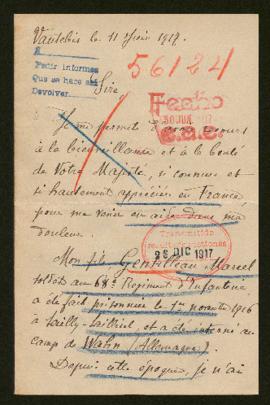 Vautebis le 11 Juin 1917.
A
Pedir informes
Que se hace así
Devolver
56124
Sire
Fecho
30 JUN. 917
Je me permets d'avoir recours
à la bienveillance et à la bonté
de Votre Majesté, si connues et
si hautement appréciées en France,
pour me venir en aide dans ma
douleur.
Transmitido
26 DIC 1917
Mon fils Gentilleau Marcel
soldat au 68e Régiment d'Infanterie
a été fait prisonnier le 1er novembre 1916
à Sailly-Saillisel et a été interné au
camp de Wahn (Allemagne).
Depuis cette époque, je n'ai